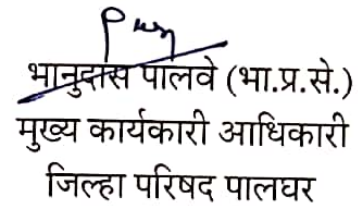 भानुदास पालवे (भा.प्र.से.)
मुख्य कार्यकारी आधिकारी
जिल्हा परिषद पालघर